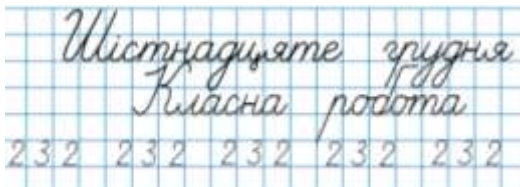 Шістнадцяте грудня
Класна робота
232 232 232 232 232